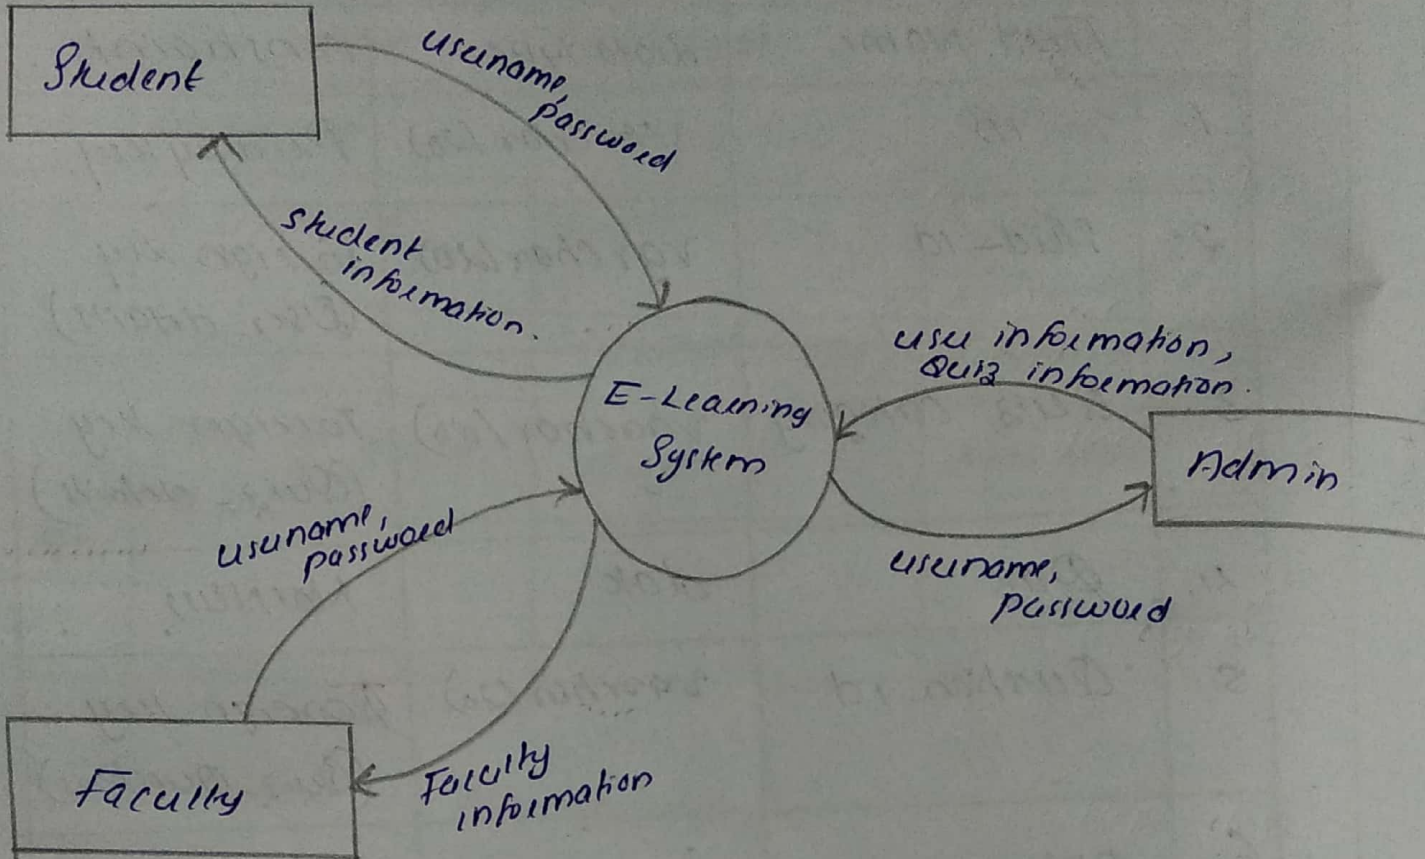 Student
username,
password
Student
information.
E-Learning
System
user information,
Quiz information.
Admin
username,
password
username,
password
Faculty
information
Faculty